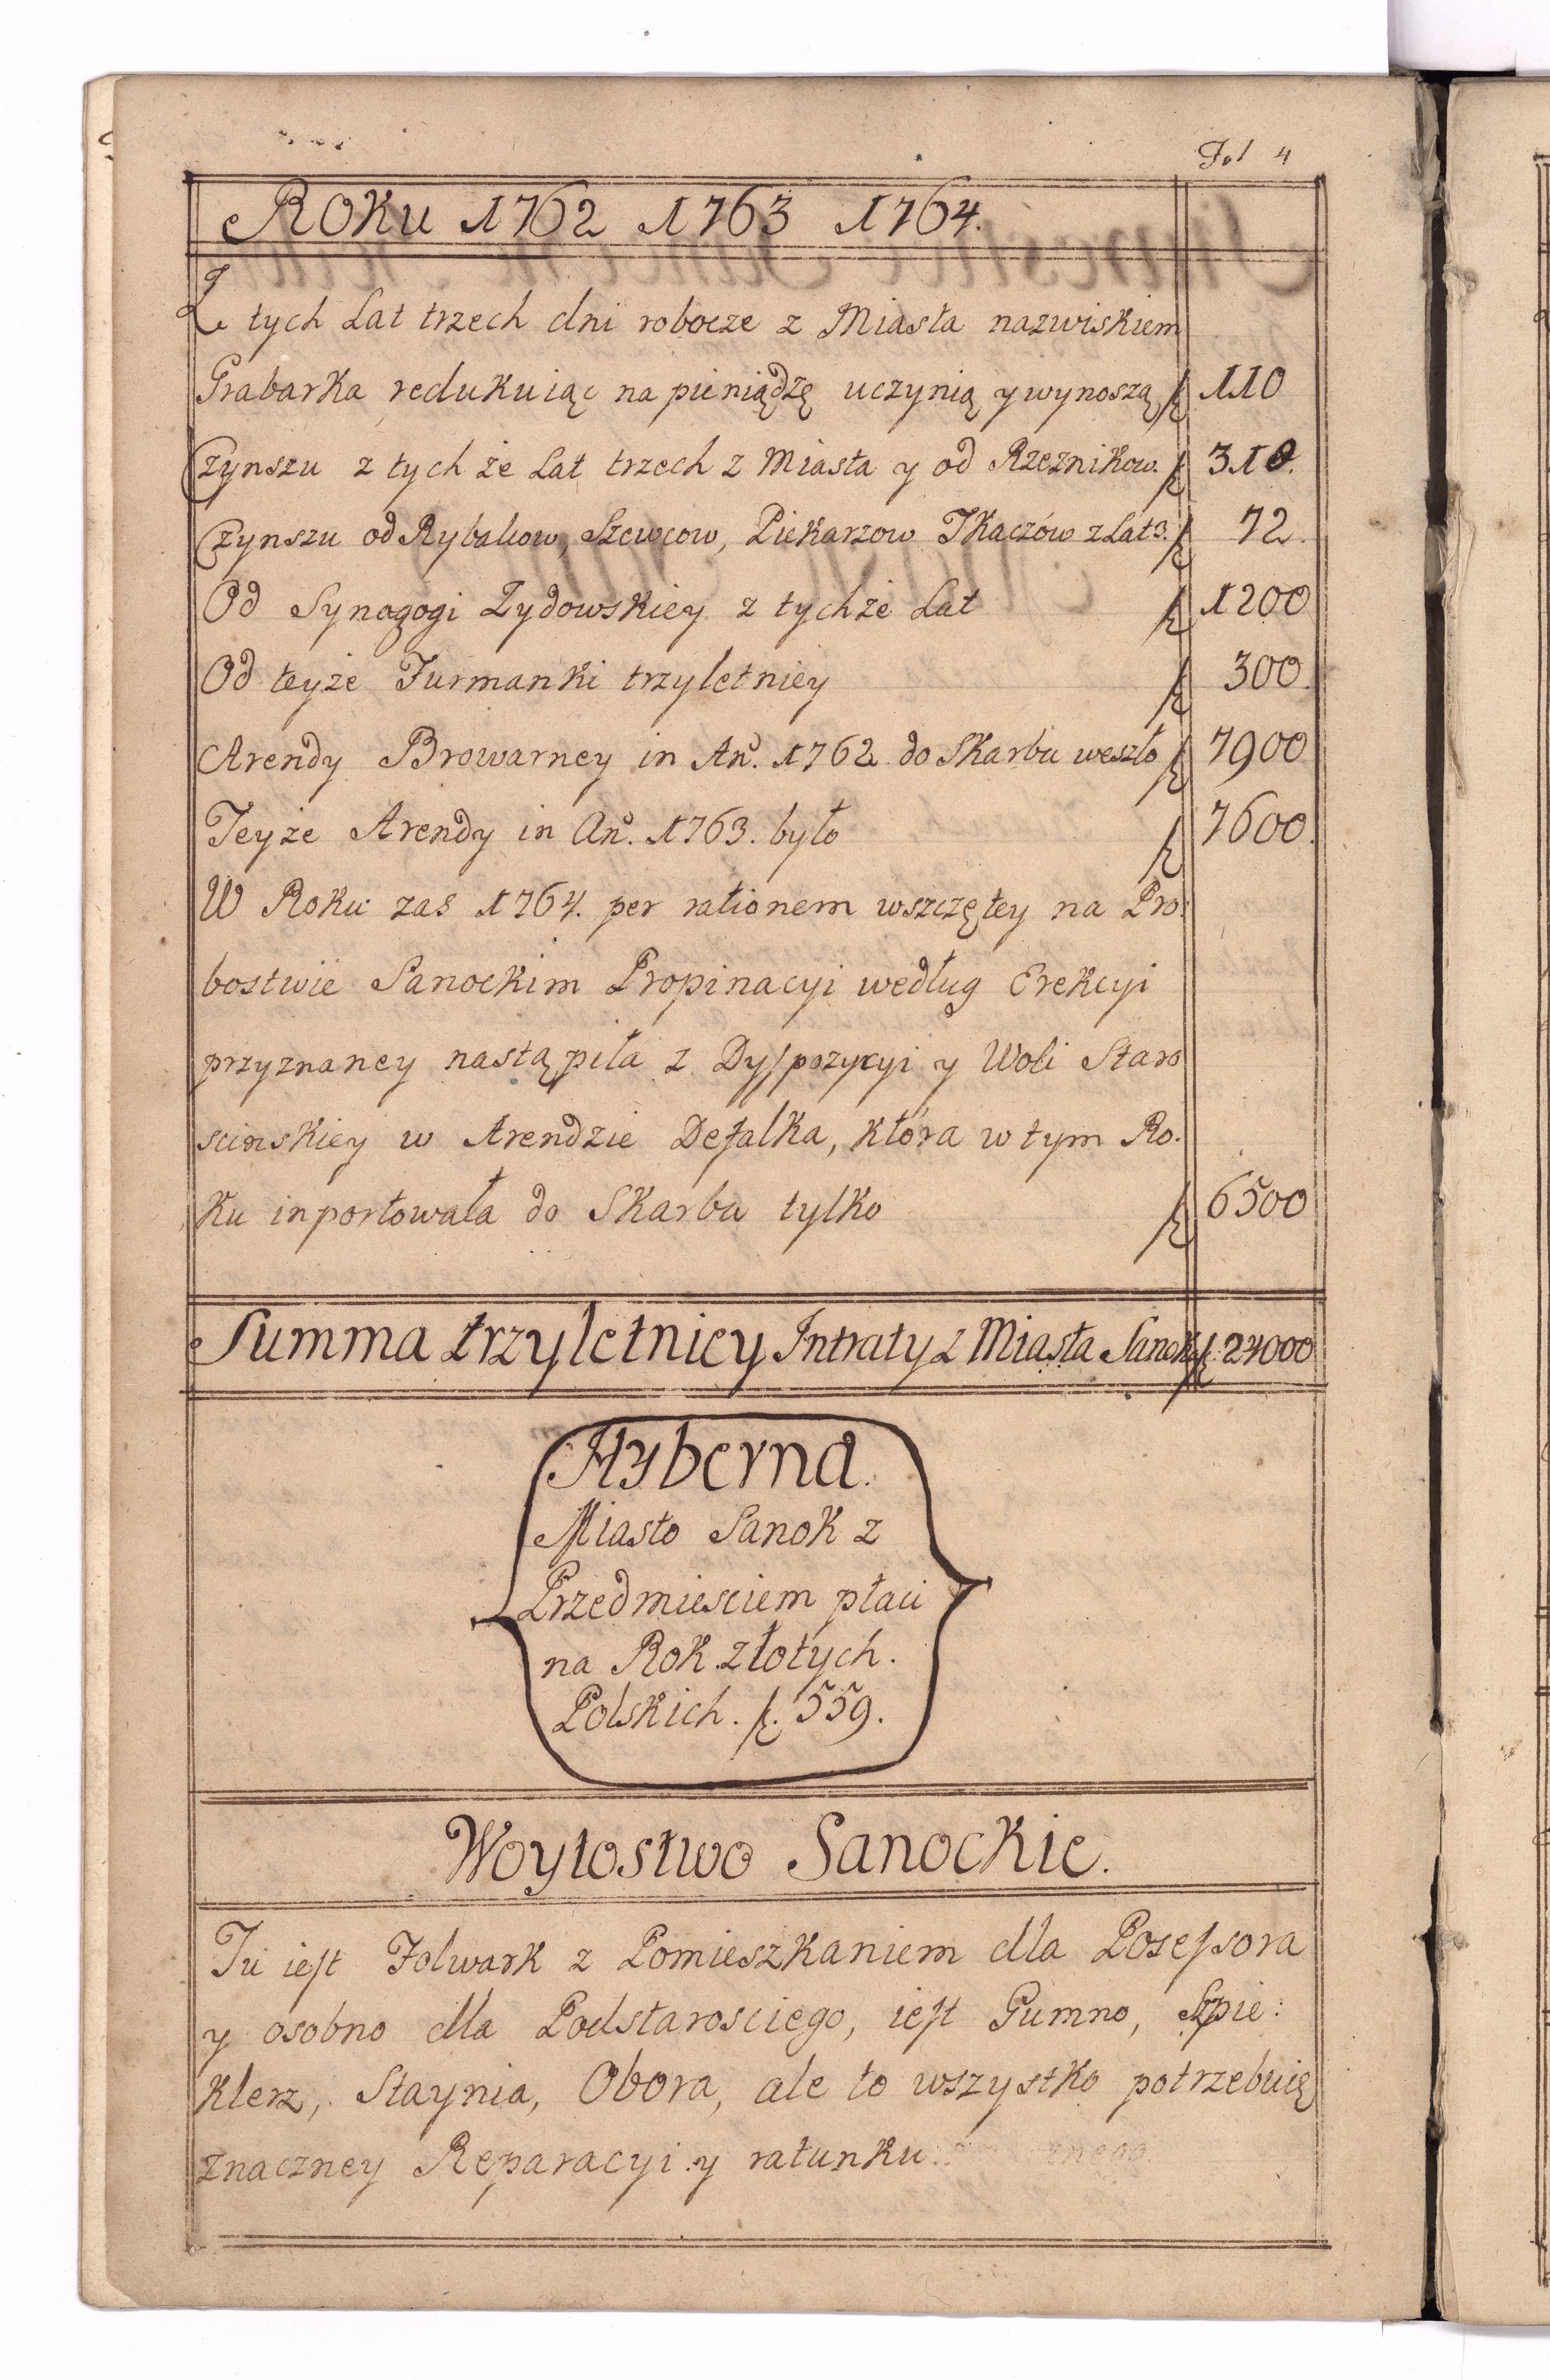 Fol 4
Roku 1762 1763 1764.
Z tych Lat trzech dni robocze z Miasta nazwiskiem
Grabarka redukuiąc na pieniądzę uczynią y wynoszą f 110
Czynszu z tych że Lat trzech z Miasta y od Rzeznikow. f 318.
Czynszu od Rybakow, Szewcow, Piekarzow Tkaczów z Lat 3. f 72.
Od Synagogi Zydowskiey z tychże Lat f 1200
Od teyże Furmanki trzyletniey f 300.
Arendy Browarney in An̄. 1762 do Skarbu weszło f 7900
Teyże Arendy in An̄. 1763. było f 7600.
W Roku zas 1764. per rationem wszczętey na Pro:
bostwie Sanockim Propinacyi według Erekcyi
przyznaney nastąpiła z Dyspozycyi y Woli Staro
scinskiey w Arendzie Defalka, która w tym Ro.
ku inportowała do Skarbu tylko f 6500
Summa trzyletniey Intraty z Miasta Sanoka f. 24000
Hyberna.
Miasto Sanok z
Przedmiesciem płaci
na Rok złotych.
Polskich. f. 559.
Woytostwo Sanockie.
Tu iest Folwark z Pomieszkaniem dla Posessora
y osobno dla Podstarosciego, iest Gumno, Szpie:
klerz, Staynia, Obora, ale to wszystko potrzebuię
znaczney Reparacyi y ratunku